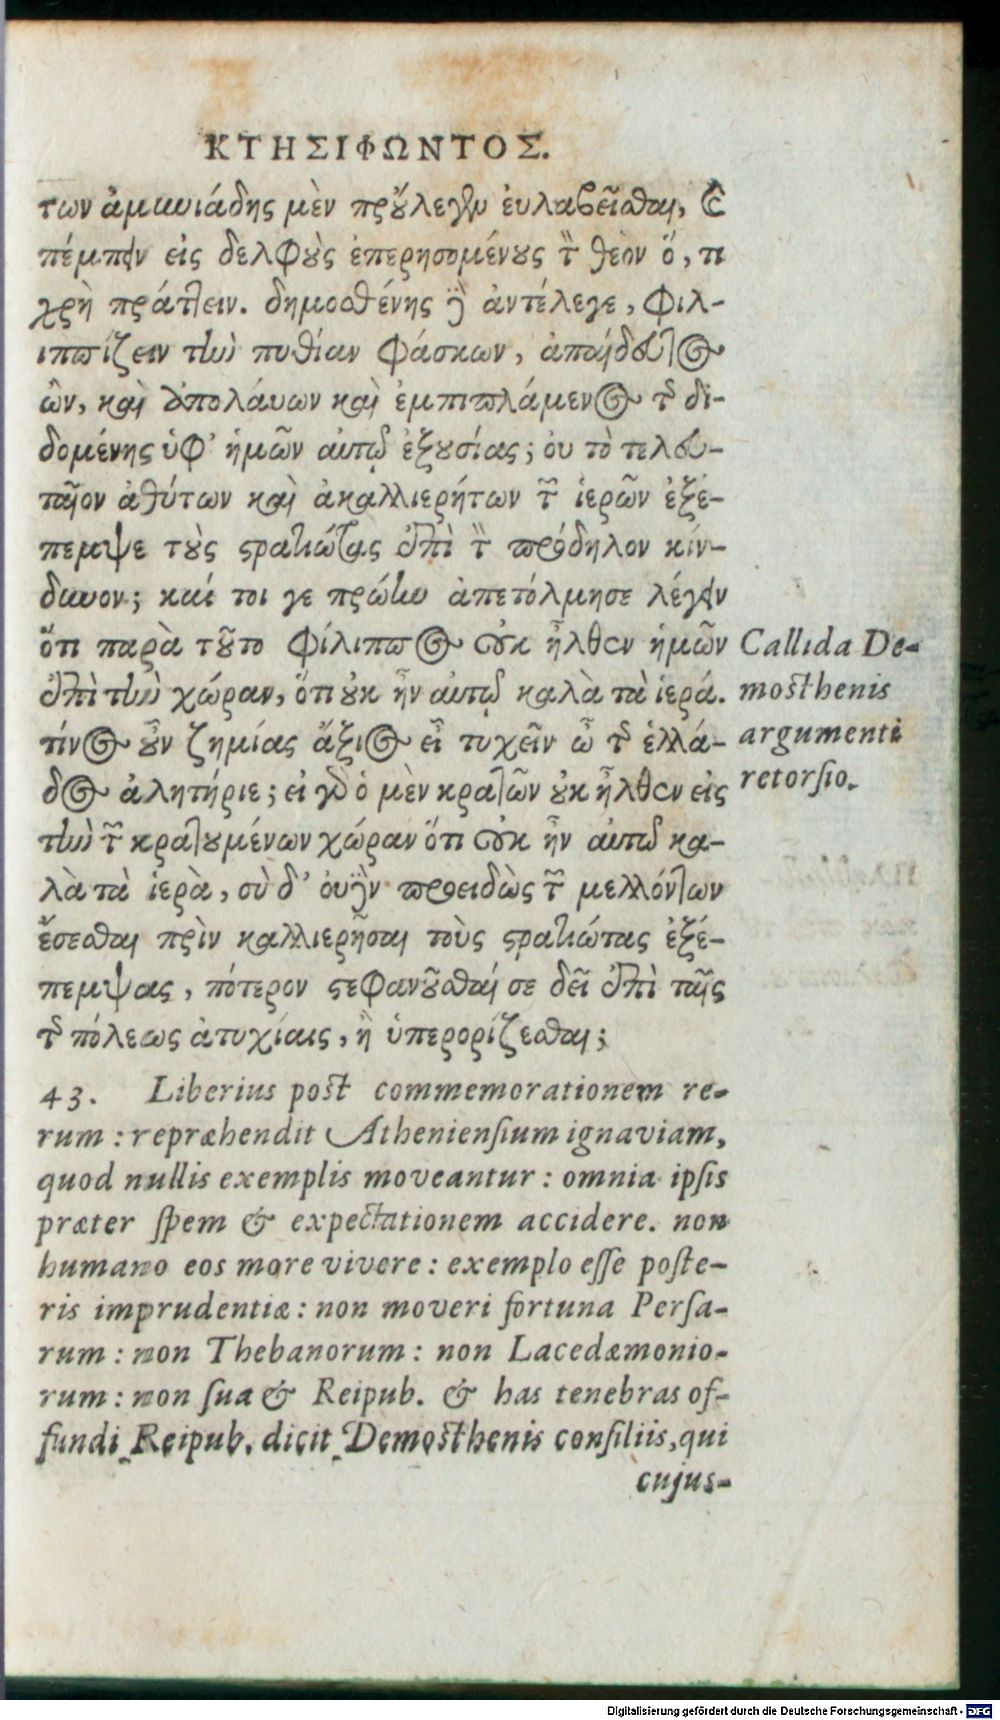 ΚΤΗΣΙΦΩΝΤΟΣ.
των ἀμεινιάδης μὲν προύλεγεν ἐυλαβεῖσθαι, καὶ
πέμπειν εἰς δελφοὺς ἐπερησομένους τὸν θεὸν ὅ, τι
χρὴ πράττειν. δημοσθένης δὲ ἀντέλεγε, Φιλ-
ιππίζειν τὴν πυθίαν φάσκων, ἀπαίδευτος
ὢν, καὶ ἀπολάυων καὶ ἐμπιπλάμενος τῆς δι-
δομένης ὑφ' ἡμῶν αὐτῷ ἐξουσίας; ὀυ τὸ τελευ-
ταῖον ἀθύτων καὶ ἀκαλλιερήτων τῶν ἱερῶν ἐξέ-
πεμψε τοὺς στρατιώτας ἐπὶ τὸν πρόδηλον κίν-
δυνον; καί τοι γε πρώην ἀπετόλμησε λέγειν
ὅτι παρὰ τοῦτο Φίλιππος οὐκ ἦλθεν ἡμῶν
ἐπὶ τὴν χώραν, ὅτι οὐκ ἦν αὐτῷ καλὰ τὰ ἱερά.
τίνος οὖν ζημίας ἄξιος εἶ τυχεῖν ὦ τῆς ἑλλά-
δος ἀλητήριε; εἰ γὰρ ὁ μὲν κρατῶν οὐκ ἦλθεν εἰς
τὴν τῶν κρατουμένων χώραν ὅτι οὐκ ἦν αὐτῷ κα-
λὰ τὰ ἱερὰ, σὺ δ' ὀυδὲν προειδὼς τῶν μελλόντων
ἔσεσθαι πρὶν καλλιερῆσαι τοὺς στρατιώτας ἐξέ-
πεμψας, πότερον στεφανοῦσθαί σε δεῖ ἐπὶ ταῖς
τῆς πόλεως ἀτυχίαις, ἢ ὑπερορίζεσθαι;
Callida De-
mosthenis
argumenti
retorsio.
43. Liberius post commemorationem re-
rum: repræhendit Atheniensium ignaviam,
quod nullis exemplis moveantur: omnia ipsis
præter spem & expectationem accidere. non
humano eos more vivere: exemplo esse poste-
ris imprudentiæ: non moveri fortuna Persa-
rum: non Thebanorum: non Lacedæmonio-
rum: non sua & Reipub. & has tenebras of-
fundi Reipub. dicit Demosthenis consiliis, qui
cujus-
Digitalisierung gefördert durch die Deutsche Forschungsgemeinschaft - DFG